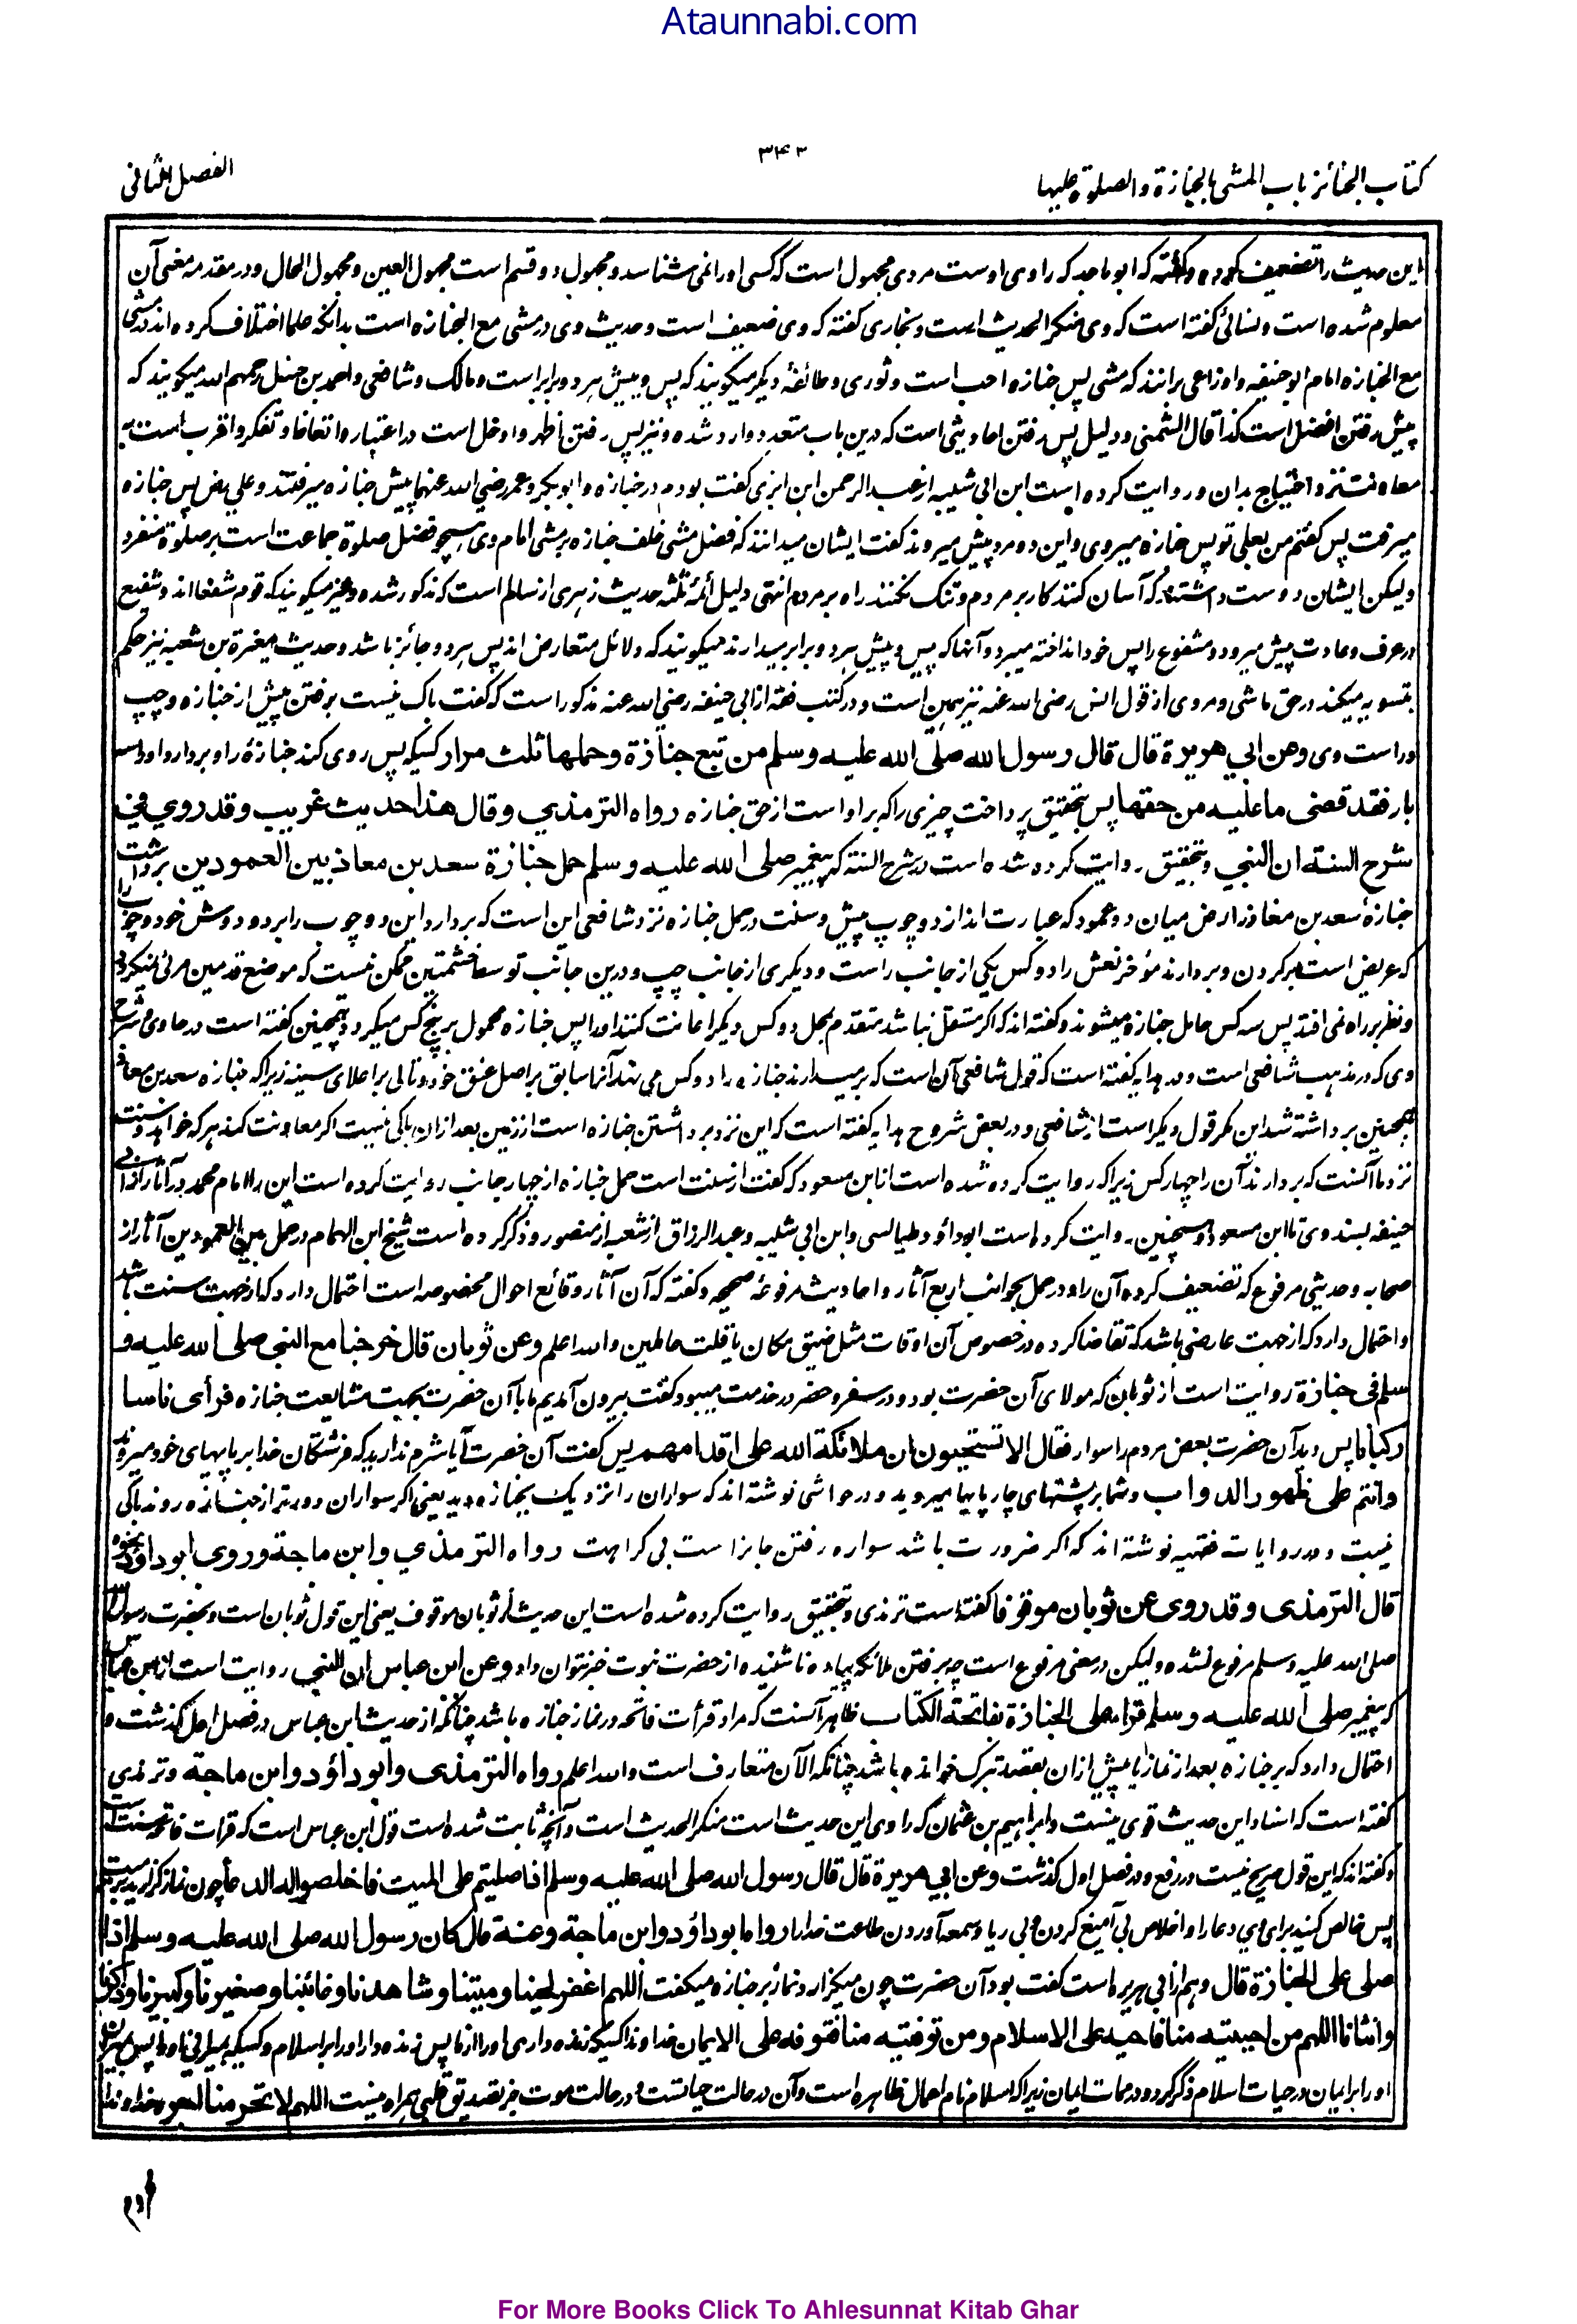 Ataunnabi.com
۳۴۲
کتاب الجنائز باب المشی بالجنازة والصلوة علیها
الفصل الثانی
این حدیث را تضعیف کرده و گفته که ابو ماجد که راوی اوست مردی مجهول است که کسی او را نمی شناسد و مجهول دو قسم است مجهول العین و مجهول الحال و در مقدمه معنی آن
معلوم شده است و نسائی گفته است که وی منکر الحدیث است و بخاری گفته که وی ضعیف است و حدیث وی در مشی مع الجنازه است بدانکه علما اختلاف کرده اند در مشی
مع الجنازه امام ابو حنیفه و اوزاعی برانند که مشی پس جنازه احب است و ثوری و طائفهٔ دیگر میگویند که پس و پیش هر دو برابر است و مالک و شافعی و احمد بن حنبل رحمهم الله میگویند که
پیش رفتن افضل است کذا قال الشمنی و دلیل پس رفتن احادیثی است که درین باب متعدد وارد شده و نیز پس رفتن اظهر و ادخل است در اعتبار و اتعاظ و تفکر و اقرب است به
معاونت نزد احتیاج بدان و روایت کرده است ابن ابی شیبه از عبد الرحمن ابن ابزی گفت بودم در جنازه و ابو بکر و عمر رضی الله عنهما پیش جنازه میرفتند و علی رض پس جنازه
میرفت پس گفتم من بعلی تو پس جنازه میروی و این دو مرد پیش میروند گفت ایشان میدانند که فضل مشی خلف جنازه بر مشی امام وی همچو فضل صلوة جماعت است بر صلوة منفرد
ولیکن ایشان دوست داشتند که آسان کنند کار بر مردم و تنگ نکنند راه بر مردم انتهی دلیل أئمهٔ ثلثه حدیث زهری از سالم است که مذکور شده و نیز میگویند که قوم شفعا اند و شفیع
در عرف و عادت پیش میرود و مشفوع را پس خود انداخته میبرد و آنها که پس و پیش هر دو برابر میدارند میگویند که دلائل متعارض اند پس هر دو جائز باشد و حدیث مغیرة بن شعبه نیز حکم
بتسویه میکند در حق ماشی و مروی از قول انس رضی الله عنه نیز همین است و در کتب فقه از ابی حنیفه رضی الله عنه مذکور است که گفت باک نیست برفتن پیش از جنازه و چپ
و راست وی وعن ابي هريرة قال قال رسول الله صلى الله عليه وسلم من تبع جنازة وحملها ثلث مرار کسیکه پس روی کند جنازه را و بردارد او را سه
بار فقد قضى ما عليه من حقها پس بتحقیق پرداخت چیزی را که بر او است از حق جنازه رواه الترمذي وقال هذا حديث غريب وقد روي في
شرح السنة ان النبي و بتحقیق روایت کرده شده است در شرح السنة که پیغمبر صلى الله عليه وسلم حمل جنازة سعد بن معاذ بين العمودين برداشت
جنازهٔ سعد بن معاذ را رض میان دو عمود که عبارت اند از دو چوب پیش و سنت در حمل جنازه نزد شافعی این است که بردارد این دو چوب را بر دو دوش خود و چوب را
که عریض است بر گردن و بردارند مؤخر نعش را دو کس یکی از جانب راست و دیگری از جانب چپ و درین جانب توسط خشبتین ممکن نیست که موضع قدمین مرئی نمیگردد
و نظر بر راه نمی افتد پس سه کس حامل جنازه میشوند و گفته اند که اگر مستقل نباشد متقدم بحمل دو کس دیگر اعانت کنند او را پس جنازه محمول بر پنج کس میگردد و همچنین گفته است در حاوی و شرح
وی که در مذهب شافعی است و در هدایه گفته است که قول شافعی آن است که برمیدارند جنازه را دو کس می نهد آنرا سابق بر اصل عنق خود و تالی بر اعلای سینه زیرا که جنازه سعد بن معاذ
همچنین برداشته شد این مگر قول دیگر است از شافعی و در بعض شروح هدایه گفته است که این نزد برداشتن جنازه است از زمین بعد ازان باکی نیست اگر معاونت کند هر که خواهد و سنت
نزد ما آنست که بردارند آن را چهار کس زیرا که روایت کرده شده است از ابن مسعود که گفت از سنت است حمل جنازه از چهار جانب روایت کرده است این را امام محمد در آثار از ابی
حنیفه بسند وی تا ابن مسعود و همچنین روایت کرده است ابو داؤد طیالسی و ابن ابی شیبه و عبد الرزاق از شعبه از منصور و ذکر کرده است شیخ ابن الهمام در حمل بین العمودین آثار از
صحابه و حدیثی مرفوع که تضعیف کرده آن را و در حمل بجوانب اربع آثار و احادیث مرفوعهٔ صحیحه و گفته که آن آثار وقائع احوال مخصوصه است احتمال دارد که از جهت سنت باشد
و احتمال دارد که از جهت عارضی باشد که تقاضا کرده در خصوص آن اوقات مثل ضیق مکان یا قلت حاملین والله اعلم وعن ثوبان قال خرجنا مع النبي صلى الله عليه و
سلم في جنازة روایت است از ثوبان که مولای آن حضرت بود و در سفر و حضر در خدمت میبود گفت بیرون آمدیم ما با آن حضرت بجهت مشایعت جنازه فرأى ناسا
ركبانا پس دید آن حضرت بعض مردم را سوار فقال الا تستحيون ان ملائكة الله على اقدامهم پس گفت آن حضرت آیا شرم ندارید که فرشتگان خدا بر پایهای خود میروند
وانتم على ظهور الدواب و شما بر پشتهای چارپایها میروید و در حواشی نوشته اند که سواران را نزدیک بجنازه دید یعنی اگر سواران دورتر از جنازه روند باکی
نیست و در روایات فقهیه نوشته اند که اگر ضرورت باشد سواره رفتن جایز است بی کراهت رواه الترمذي وابن ماجة وروى ابو داؤد نحوه
قال الترمذي وقد روى عن ثوبان موقوفا گفته است ترمذی و بتحقیق روایت کرده شده است این حدیث از ثوبان موقوف یعنی این قول ثوبان است و بحضرت رسول الله
صلی الله علیه وسلم مرفوع نشده ولیکن در معنی مرفوع است چه برفتن ملائکه پیاده ناشنیده از حضرت نبوت خبر نتوان داد وعن ابن عباس ان النبي روایت است از ابن عباس
که پیغمبر صلى الله عليه وسلم قرأ على الجنازة بفاتحة الكتاب ظاهر آنست که مراد قرأت فاتحه در نماز جنازه باشد چنانکه از حدیث ابن عباس در فصل اول گذشت و
احتمال دارد که بر جنازه بعد از نماز یا پیش ازان بقصد تبرک خوانده باشد چنانکه الآن متعارف است والله اعلم رواه الترمذي وابو داؤد وابن ماجة و ترمذی
گفته است که اسناد این حدیث قوی نیست و ابراهیم بن عثمان که راوی این حدیث است منکر الحدیث است و آنچه ثابت شده است قول ابن عباس است که قرات فاتحه سنت است
و گفته اند که این قول صریح نیست در رفع و در فصل اول گذشت وعن ابي هريرة قال قال رسول الله صلى الله عليه وسلم اذا صليتم على الميت فاخلصوا له الدعاء چون نماز گزارید بر میت
پس خالص کنید برای وی دعا را و اخلاص بی آمیغ کردن و بی ریا و سمعه آوردن طاعت خدا را رواه ابو داؤد وابن ماجة وعنه قال كان رسول الله صلى الله عليه وسلم اذا
صلى على الجنازة قال و هم از ابی هریره است گفت بود آن حضرت چون میگزارد نماز بر جنازه میگفت اللهم اغفر لحينا وميتنا وشاهدنا وغائبنا وصغيرنا وكبيرنا وذكرنا
وانثانا اللهم من احييته منا فاحيه على الاسلام ومن توفيته منا فتوفه على الايمان خداوندا کسیکه زنده داری او را از ما پس زنده دار او را بر اسلام و کسیکه بمیرانی او را پس بمیران
او را بر ایمان در حیات اسلام ذکر کرد و در ممات ایمان زیرا که اسلام نام اعمال ظاهره است و آن در حالت حیاتست و در حالت موت جز تصدیق قلبی همراه نیست اللهم لا تحرمنا اجره خداوندا
For More Books Click To Ahlesunnat Kitab Ghar